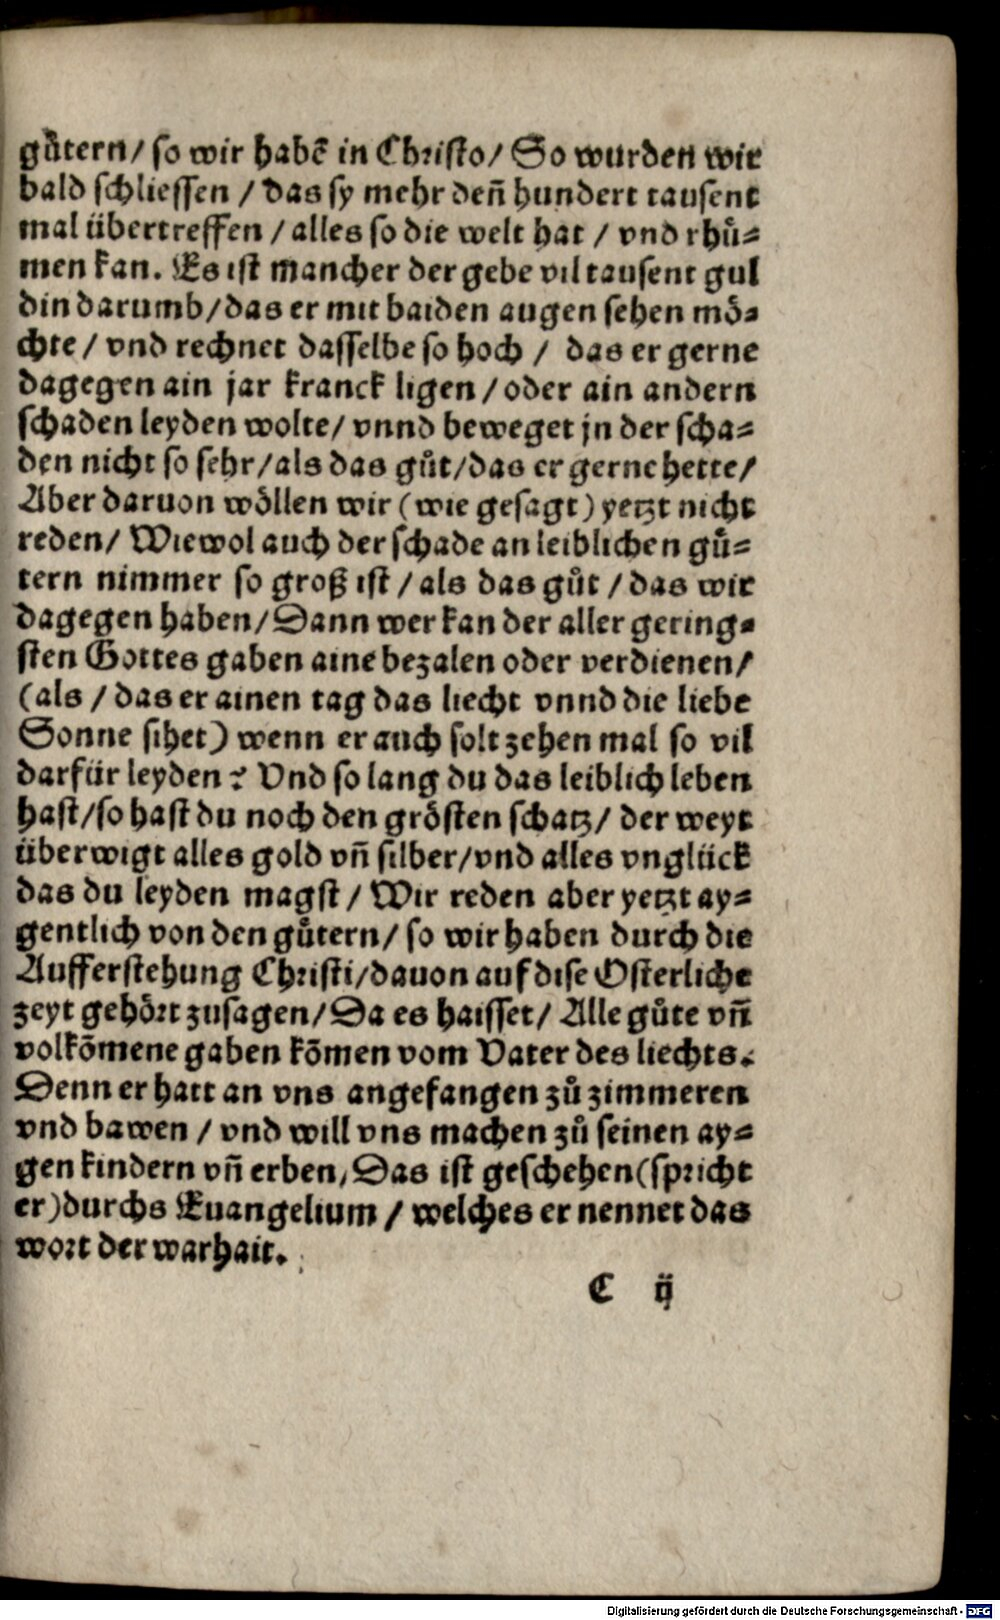 gůtern/ so wir habē in Christo/ So wurden wir
bald schliessen / das sy mehr deñ hundert tausent
mal übertreffen / alles so die welt hat / vnd rhů-
men kan. Es ist mancher der gebe vil tausent gul
din darumb/das er mit baiden augen sehen mö-
chte / vnd rechnet dasselbe so hoch / das er gerne
dagegen ain jar kranck ligen / oder ain andern
schaden leyden wolte/ vnnd beweget jn der scha-
den nicht so sehr/als das gůt/das er gerne hette/
Aber daruon wöllen wir (wie gesagt) yetzt nicht
reden/ Wiewol auch der schade an leiblichen gů-
tern nimmer so groß ist / als das gůt / das wir
dagegen haben/ Dann wer kan der aller gering-
sten Gottes gaben aine bezalen oder verdienen/
(als / das er ainen tag das liecht vnnd die liebe
Sonne sihet) wenn er auch solt zehen mal so vil
darfür leyden? Vnd so lang du das leiblich leben
hast/so hast du noch den grösten schatz/ der weyt
überwigt alles gold vñ silber/vnd alles vnglück
das du leyden magst / Wir reden aber yetzt ay-
gentlich von den gůtern/ so wir haben durch die
Aufferstehung Christi/dauon auf dise Osterliche
zeyt gehört zusagen/ Da es haisset/ Alle gůte vñ
volkōmene gaben kōmen vom Vater des liechts.
Denn er hatt an vns angefangen zů zimmeren
vnd bawen / vnd will vns machen zů seinen ay-
gen kindern vñ erben, Das ist geschehen (spricht
er) durchs Euangelium / welches er nennet das
wort der warhait.
C ij
Digitalisierung gefördert durch die Deutsche Forschungsgemeinschaft - DFG